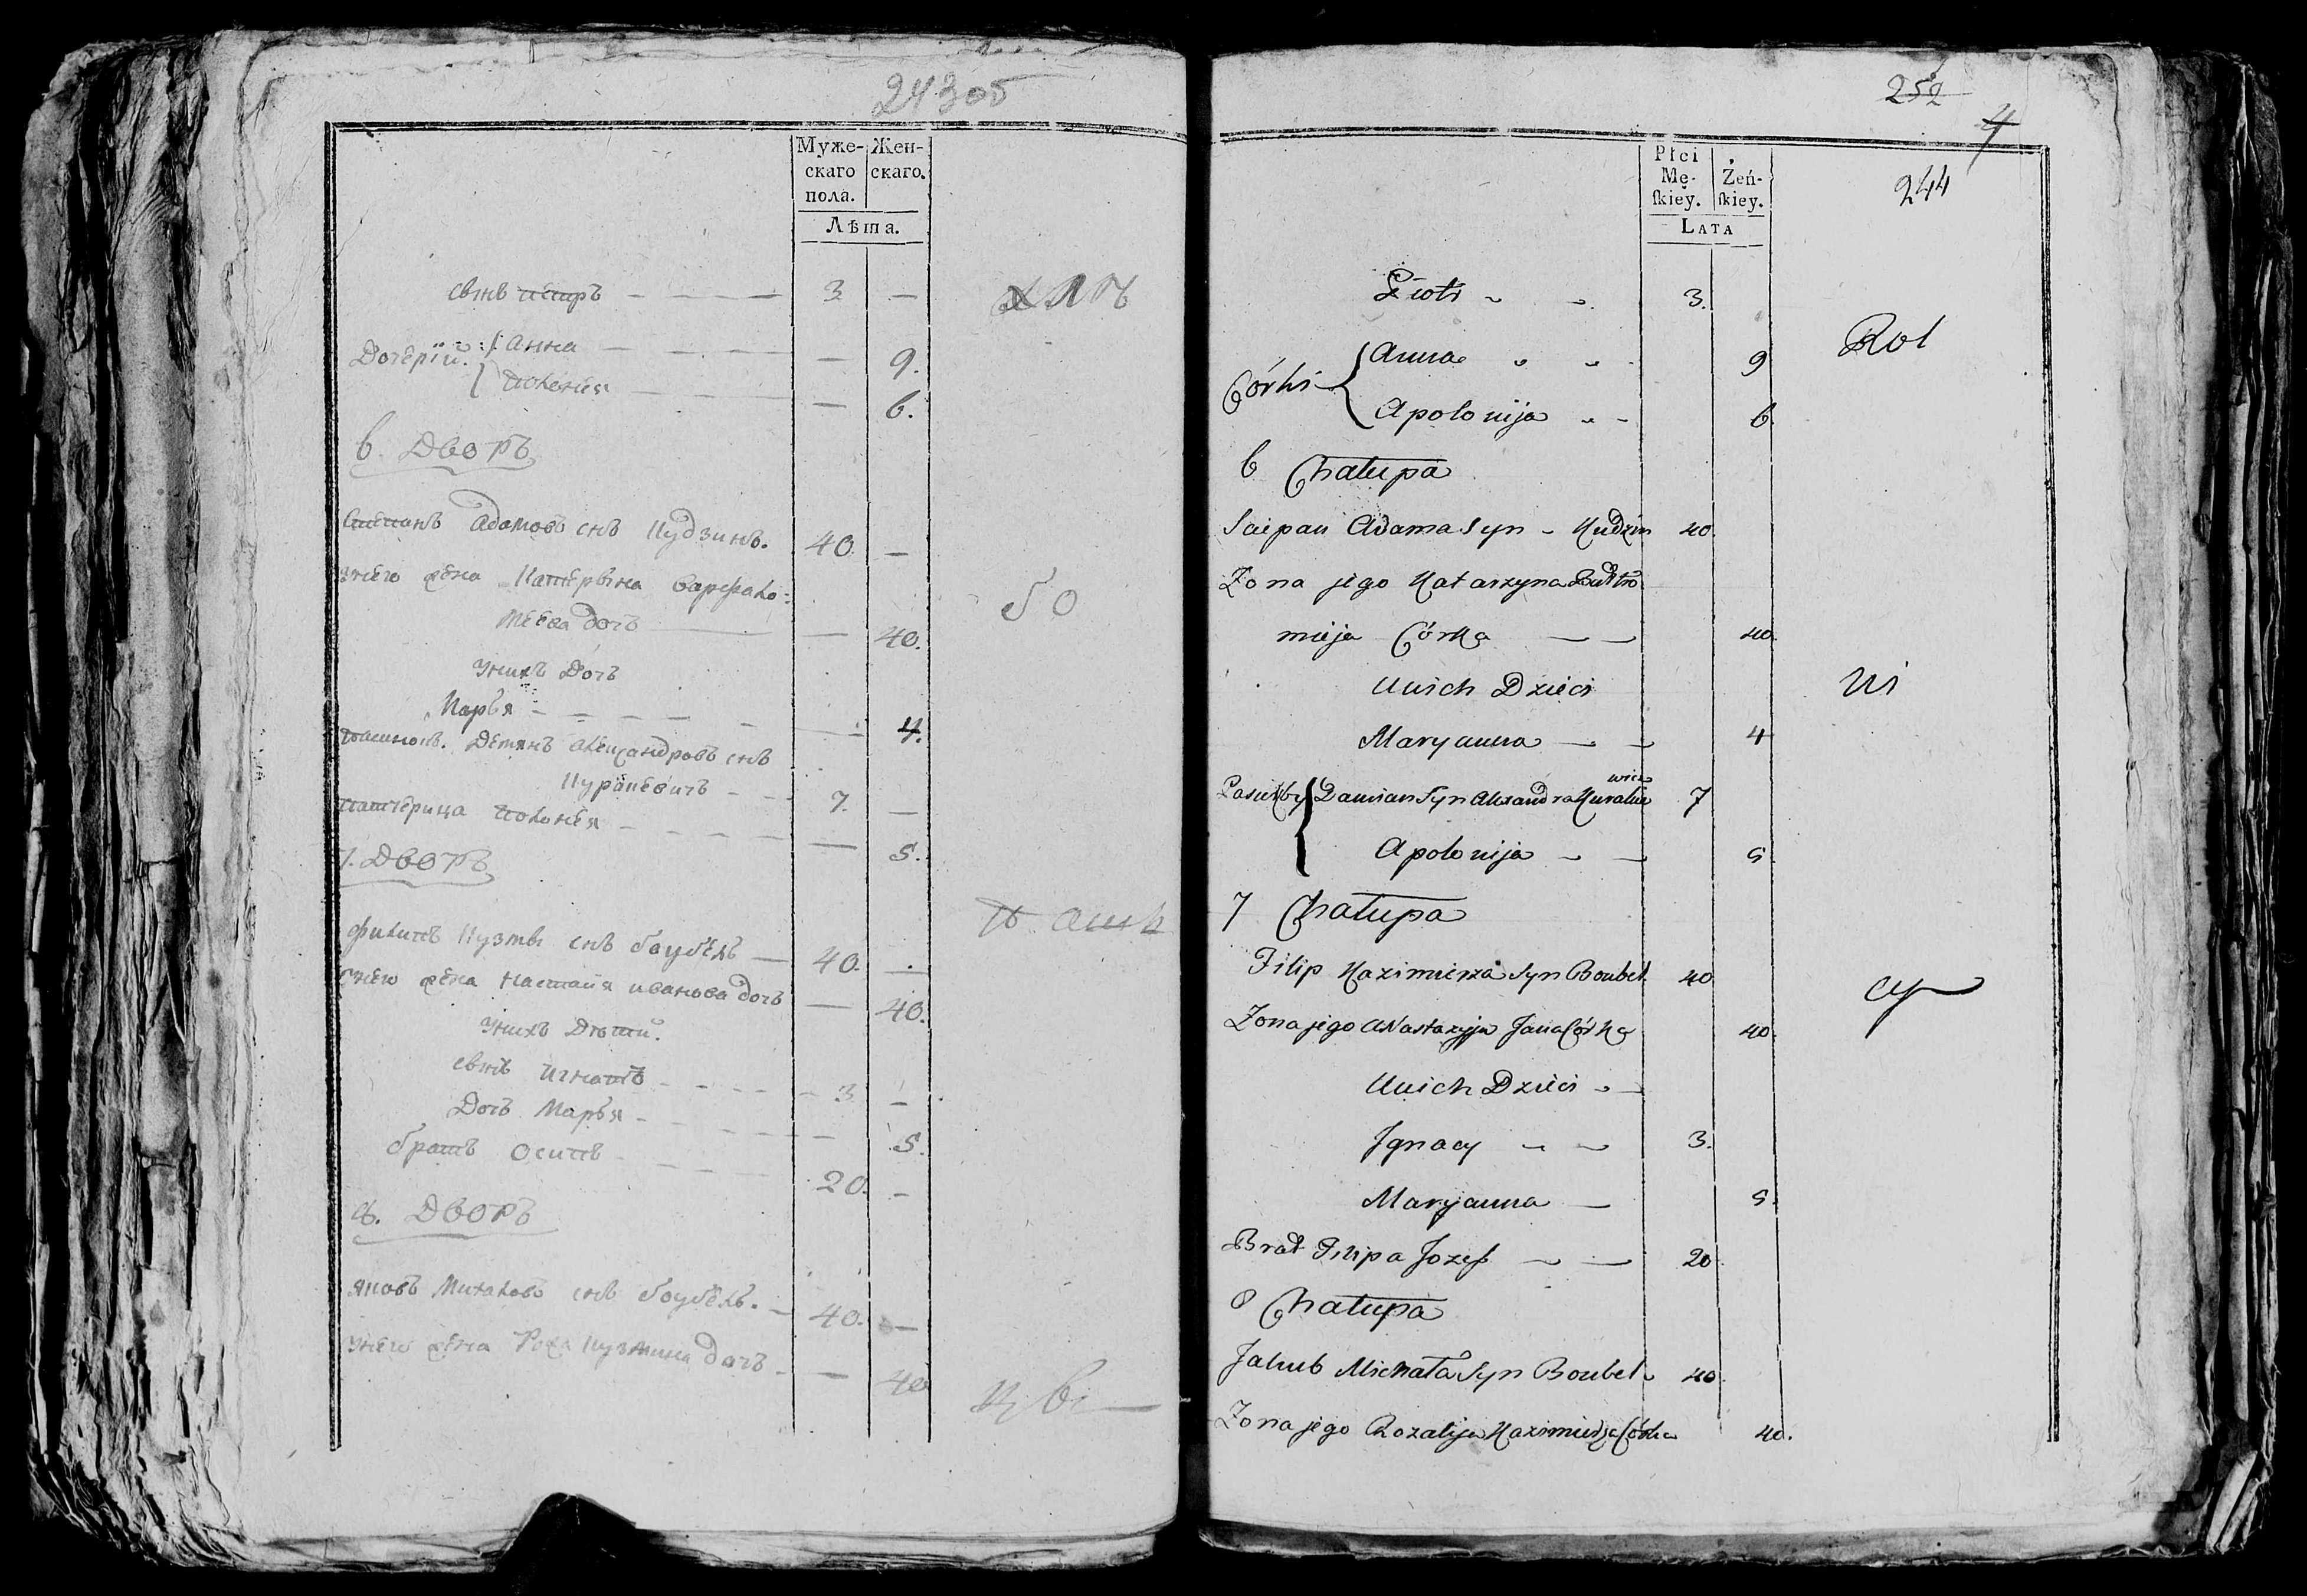 243об
Муже-
скаго
пола.
Жен-
скаго.
Лѣта.
сынъ петръ 3 —
Дочерїи: Анна — 9.
Полонея — 6.
6. Дворъ
Степанъ Адамовъ снъ Кудзинъ. 40 —
унего жена Катерына варфало-
меева дочъ — 40.
унихъ Дочь
Марья — 4.
пасынокъ. Демянъ Александровъ снъ
Куралевичъ 7. —
патчерица Полонея — 5.
7. Дворъ
Филипъ Кузмы снъ боубель 40. —
унего жена Настасия иванова дочъ — 40.
унихъ Дѣти.
сынъ игнатъ 3 —
Дочъ Марья — 5.
братъ Осипъ 20. —
8. Дворъ
яковъ Михаловъ снъ боубель. 40. —
унего жена Роза Кузмина дочъ — 40
бо
252
4
244
Płci
Mę-
ſkiey.
Żeń-
ſkiey.
Lata
Piotr 3.
Rol
Córki Anna 9
Apolonija 6.
6 Chałupa
Sciepan Adama Syn Kudzin 40.
Zona jego Katarzyna Bartło
mieja Córka 40.
Unich Dzieci
ni
Maryanna 4
wicz
Pasierby Damian Syn Alexandra Kurale 7
Apolonija 5.
7 Chałupa
Filip Kazimierza Syn Boubel 40.
cy
Zona jego Anastazyja Jana Córka 40.
Unich Dzieci
Jgnacy 3.
Maryanna 5.
Brat Filipa Jozef 20
8 Chałupa
Jakub Michała Syn Boubel 40.
Zona jego Rozalija Kazimierza Córka 40.